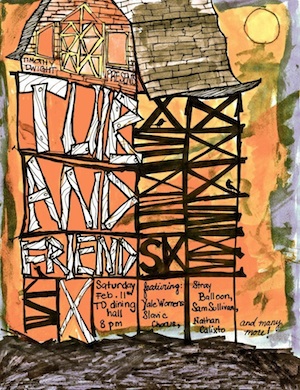 TIMOTHY
DWIGHT PRESENTS
TUIB
AND
FRIENDS
Saturday
Feb. 11th
TD dining
hall
8 pm
featuring:
Yale Womens
Slavic
Chorus,
Stray
Balloon,
Sam Sullivan,
Nathan
Calixto
and many
more!